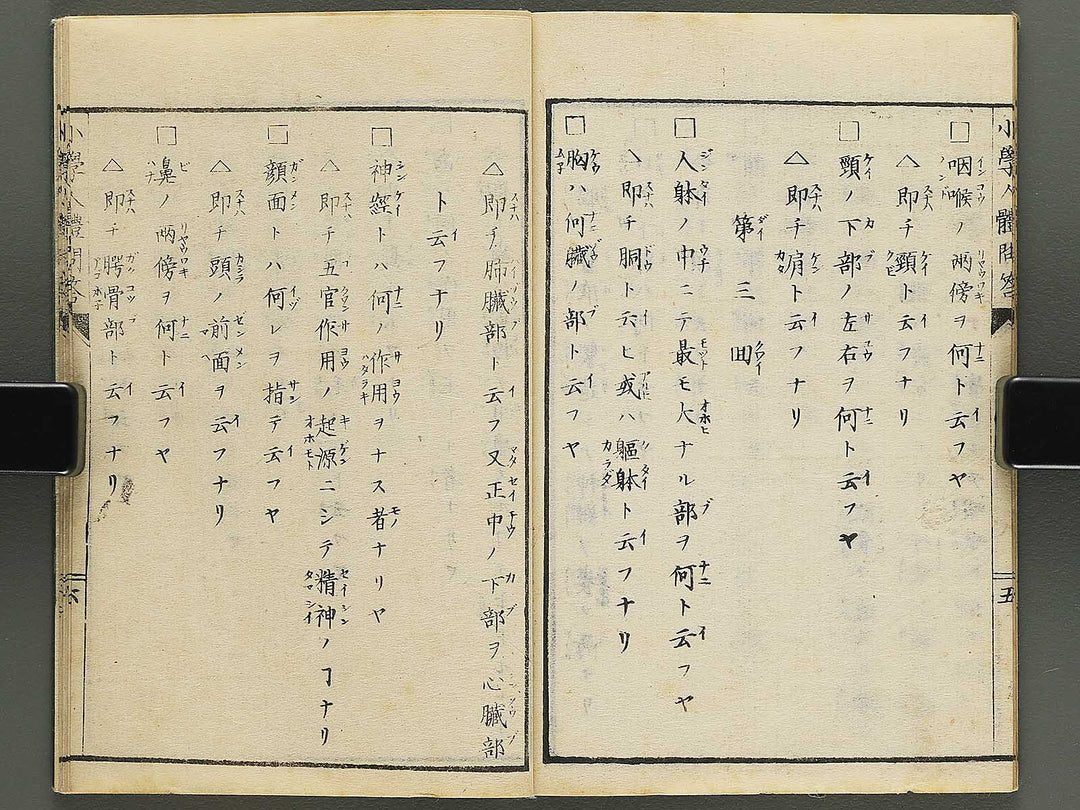 小學人體問答
□咽喉ノ両傍ヲ何ト云フヤ
△即チ頸ト云フナリ
□頸ノ下部ノ左右ヲ何ト云フヤ
△即チ肩ト云フナリ
第三回
□人躰ノ中ニテ最モ大ナル部ヲ何ト云フヤ
△即チ胴ト云ヒ或ハ軀躰ト云フナリ
□胸ハ何臓ノ部ト云フヤ
五
△即チ肺臓部ト云フ又正中ノ下部ヲ心臓部
ト云フナリ
□神經トハ何ノ作用ヲナス者ナリヤ
△即チ五官作用ノ起源ニシテ精神ノヿナリ
□顔面トハ何レヲ指テ云フヤ
△即チ頭ノ前面ヲ云フナリ
□鼻ノ両傍ヲ何ト云フヤ
△即チ腭骨部ト云フナリ
小學人體問答
六